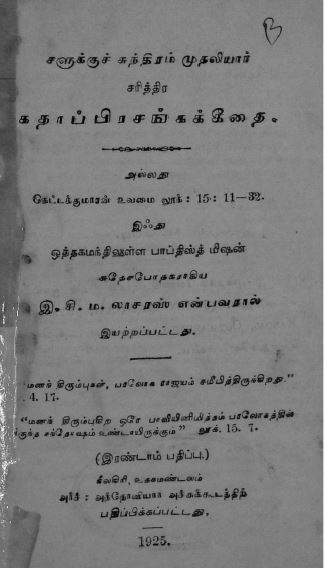 B
சளுக்குச் சுந்திரம் முதலியார்
சரித்திர
கதாப்பிரசங்கக்கீதை.
அல்லது
கெட்டக்குமாரன் உவமை லூக்: 15: 11—32.
இஃது
ஒத்தகமந்திலுள்ள பாப்திஸ்த் மிஷன்
சுதேஸபோதகராகிய
இ. சி. ம. லாசரஸ் என்பவரால்
இயற்றப்பட்டது.
மனந் திரும்புகள், பரலோக ராஜயம் சமீபித்திருக்கிறது."
4. 17.
"மனந் திரும்புகிற ஒரே பாவியினிமித்தம் பரலோகத்தின்
சந்தோஷம் உண்டாயிருக்கும்" லூக். 15. 7.
(இரண்டாம் பதிப்பு.)
நீலகிரி, உதகமண்டலம்
அர்ச் : அந்தோனியார் அச்சுக்கூடத்திற்
பதிப்பிக்கப்பட்டது.
1925.